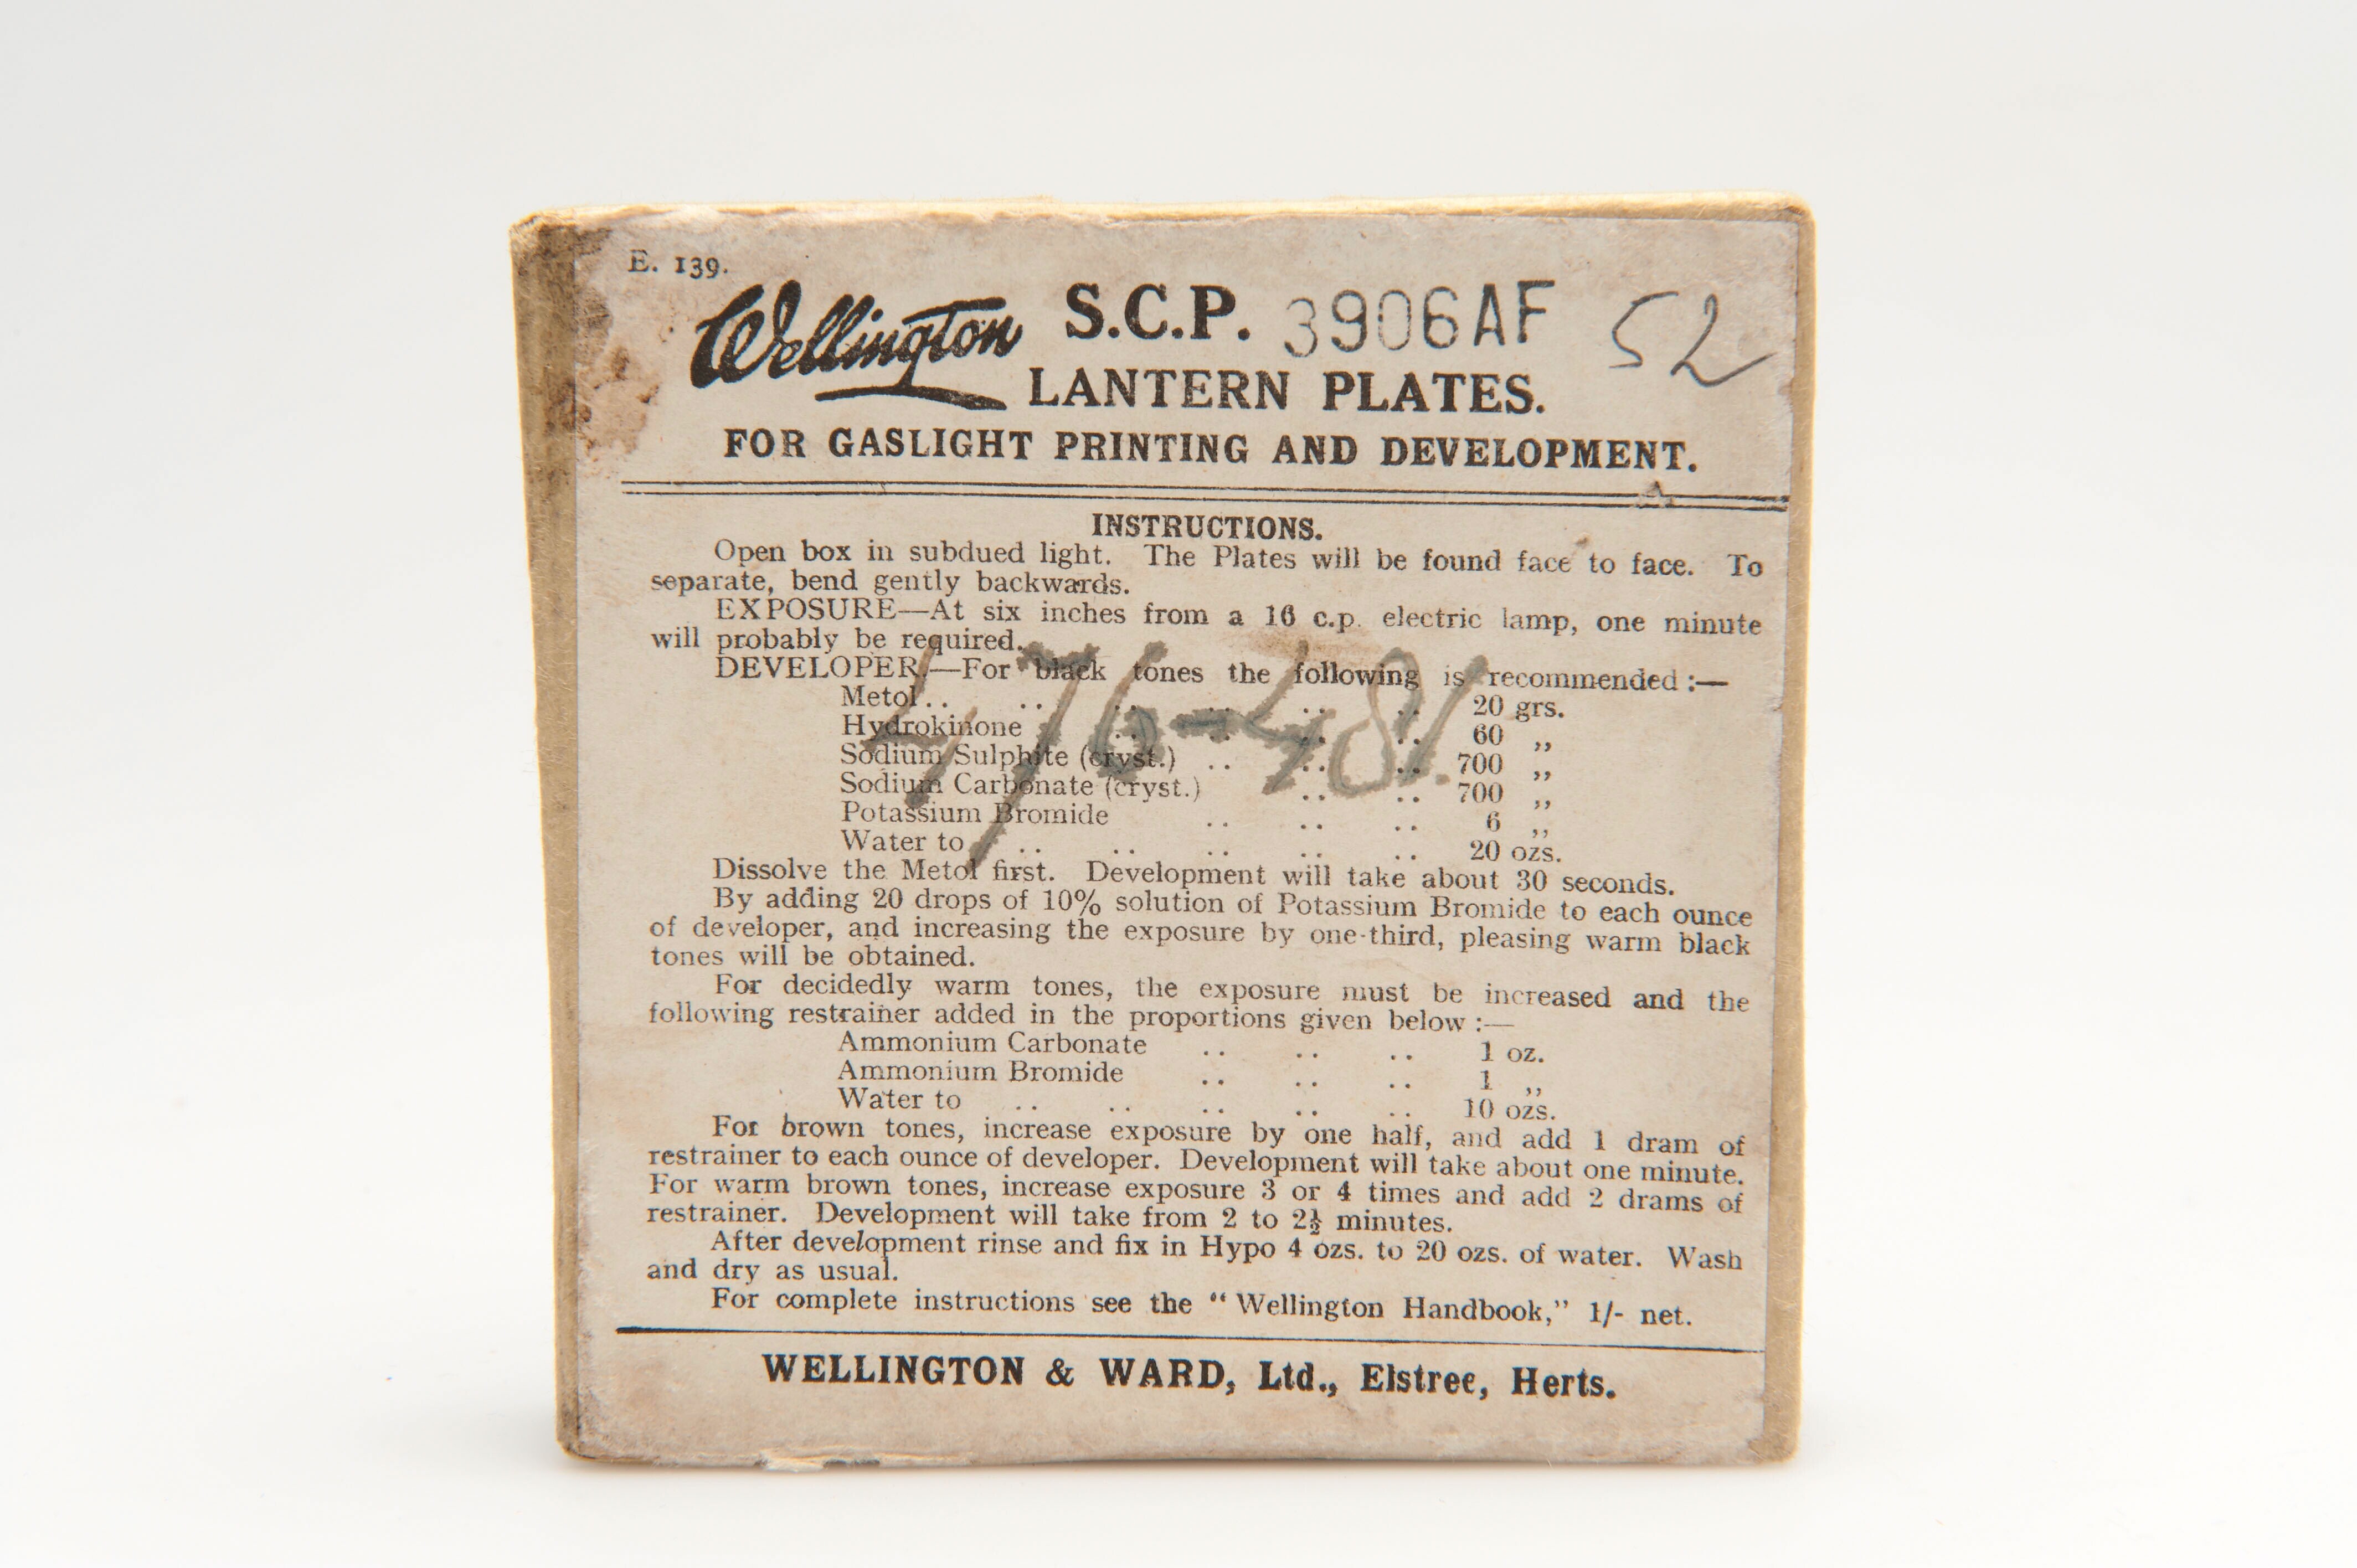 E. 139.
Wellington S.C.P. 3906AF 52
LANTERN PLATES.
FOR GASLIGHT PRINTING AND DEVELOPMENT.
INSTRUCTIONS.
Open box in subdued light. The Plates will be found face to face. To
separate, bend gently backwards.
EXPOSURE—At six inches from a 16 c.p. electric lamp, one minute
will probably be required.
DEVELOPER.—For black tones the following is recommended :—
Metol .. .. .. .. .. .. 20 grs.
Hydrokinone .. .. .. .. 60 ,,
Sodium Sulphite (cryst.) .. .. .. 700 ,,
Sodium Carbonate (cryst.) .. .. 700 ,,
Potassium Bromide .. .. .. 6 ,,
Water to .. .. .. .. .. 20 ozs.
476-481.
Dissolve the Metol first. Development will take about 30 seconds.
By adding 20 drops of 10% solution of Potassium Bromide to each ounce
of developer, and increasing the exposure by one-third, pleasing warm black
tones will be obtained.
For decidedly warm tones, the exposure must be increased and the
following restrainer added in the proportions given below :—
Ammonium Carbonate .. .. .. 1 oz.
Ammonium Bromide .. .. .. 1 ,,
Water to .. .. .. .. .. 10 ozs.
For brown tones, increase exposure by one half, and add 1 dram of
restrainer to each ounce of developer. Development will take about one minute.
For warm brown tones, increase exposure 3 or 4 times and add 2 drams of
restrainer. Development will take from 2 to 2½ minutes.
After development rinse and fix in Hypo 4 ozs. to 20 ozs. of water. Wash
and dry as usual.
For complete instructions see the "Wellington Handbook," 1/- net.
WELLINGTON & WARD, Ltd., Elstree, Herts.